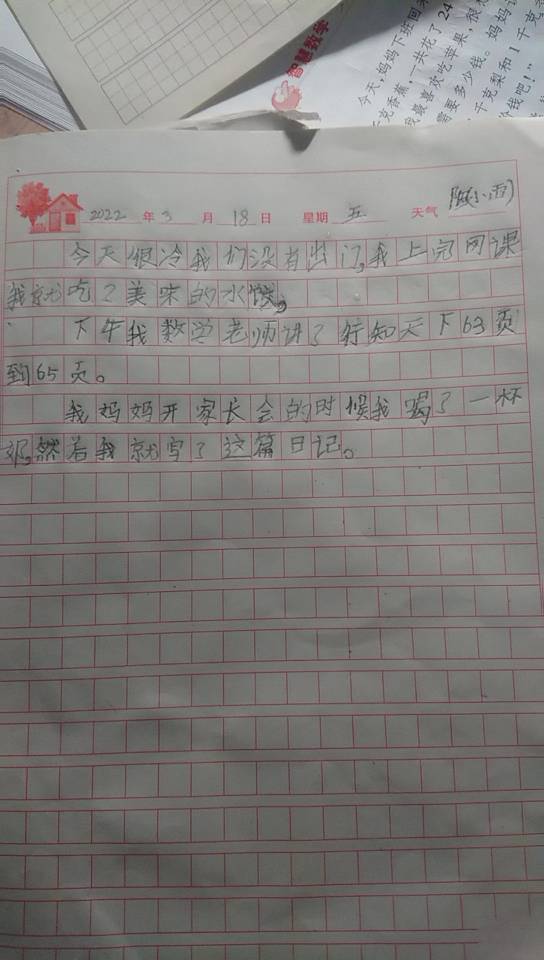 智慧数学
今天,妈妈下班回来
千克香蕉,一共花了24
我最喜欢吃苹果,
需要多少钱。妈妈
千克梨和1千克
价钱吧!”
2022 年 3 月 18 日 星期 五 天气 (小雨)
今天很冷我们没有出门,我上完网课
我就吃了美味的水饺,
下午我数学老师讲了行知天下63页
到65页。
我妈妈开家长会的时候我喝了一杯
奶,然着我就写了这篇日记。